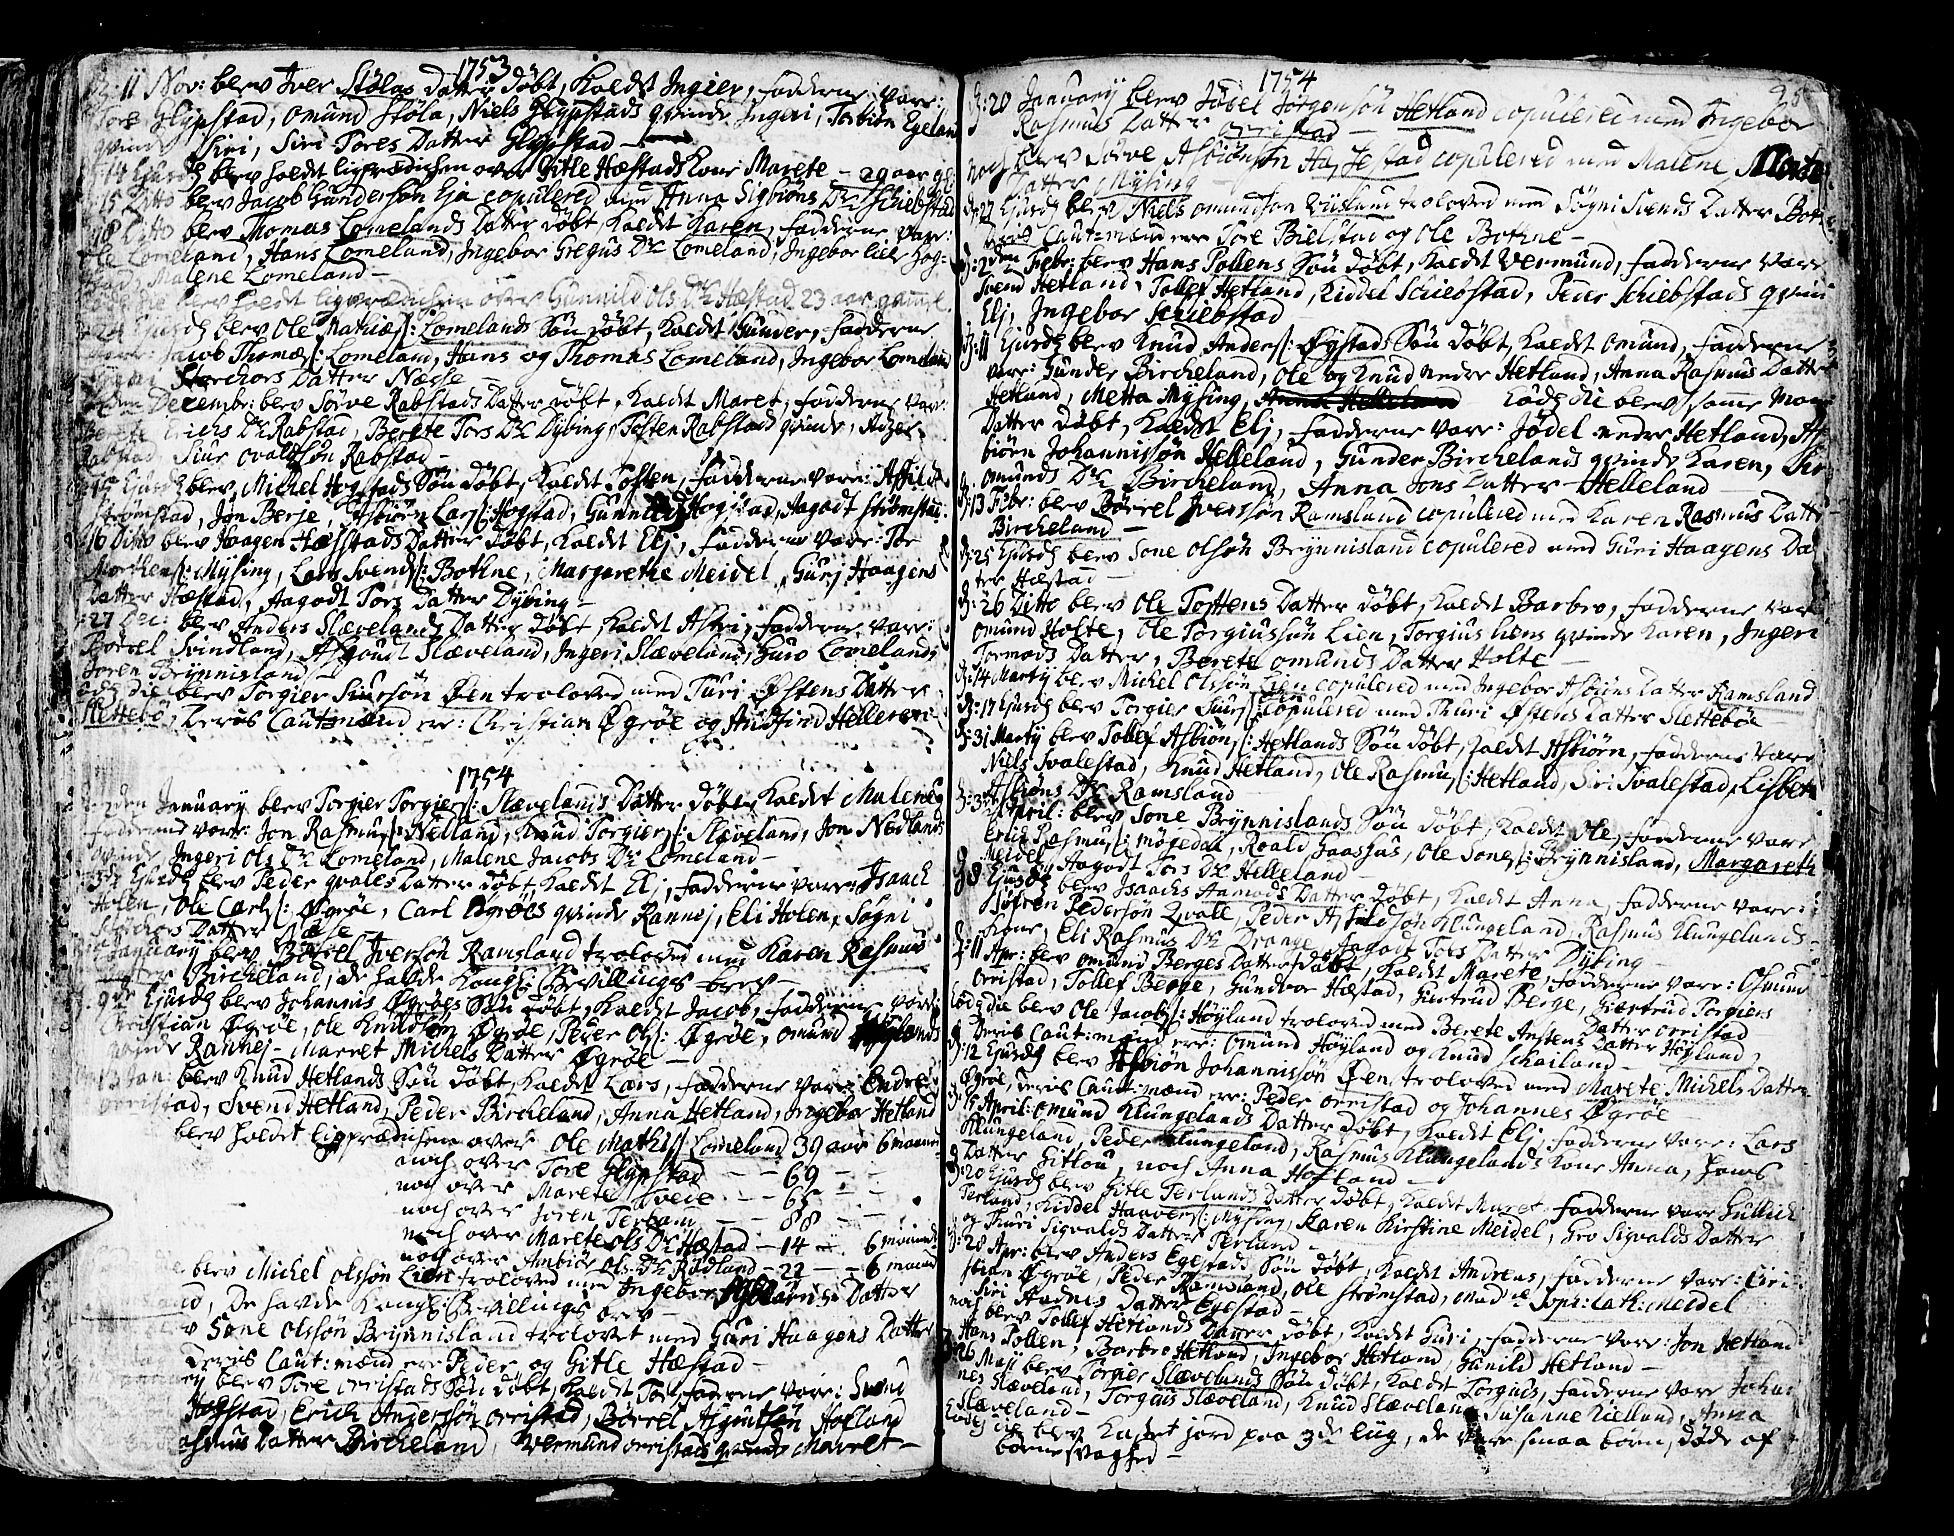 1753
11 Nov: blev Iver Stølas Datter døbt, kaldt Ingier, fadderne vare:
Tore Glypstad, Omund Støla, Niels Glypstads qvinde Ingeri, Torbiøn Egeland
qvinde Siri, Siri Tores Datter Glypstad —
14 Ejusdg blev holdt ligprædichen over Gitle Hæstads kone Marete — 29 aar gl:
15 Ditto blev Jacob Gundersøn Eja copulered med Anna Sigbiøns Dtr Schiebstad
18 Ditto blev Thomas Lomelands Datter døbt kaldt Karen, fadderne vare:
Ole Lomeland, Hans Lomeland, Ingebor Gregus Dtr Lomeland, Ingebor
Malene Lomeland —
blev holdt ligprædichen over Gunnild Ols Dtr Hæstad 23 aar gammel
24 Ejusdg blev Ole Mathias/: Lomelands Søn døbt, kaldt Gunder, fadderne
vare: Jacob Thomas/: Lomeland, Hans og Thomas Lomeland, Ingebor Lomeland
Storchors Datter Næsse —
den Decembr: blev Sørve Rabstads Datter døbt, kaldt Maret, fadderne var:
Erichs Dtr Rabstad, Berete Tors Dtr Dybing, Tosten Rabstads qvinde,
Rabstad Siur Ovaldsøn Rabstad —
Ejusdg blev Michel Hogstads Søn døbt, kaldt Tosten, fadderne vare:
Strømstad, Jon Berje, Asbiørn Lars/: Hogstad, Gunnild Hogstad, Aagodt Strømstad
16 Ditto blev Haagen Hæstads Datter døbt, kaldt Elj, fadderne vare: Tor
Morthens/: Mysing, Lars Svends/: Bothne, Margarethe Meidel, Gurj Haagens
Datter Hæstad, Aagodt Tors Datter Dybing —
27 Dec: blev Anders Slævelands Datter døbt, kaldt Astri, fadderne vare:
Børrel Svindland, Slæveland, Ingeri Slæveland, Guro Lomeland,
Joren Brynnisland —
die blev Torgier Siursøn Øen troloved med Turi Østens Datter
Slettebø, Deris Cautmænd er: Christian Øgrøe og Andfind Helleren
1754
den January blev Torgier Torgiers/: Slævelands Datter døbt, kaldt Malene,
fadderne vare: Jon Rasmus/: Nedland, Knud Torgiers/: Slæveland, Jon Nedlands
qvinde Ingeri Ols Dtr Lomeland, Malene Jacobs Dtr Lomeland —
Ejusdg blev Peder qvales Datter døbt, kaldt Elj, fadderne vare: Isaach
Holen, Ole Carls/: Øgrøe, Carl Øgrøes qvinde Rannej, Eli Holen, Søgni
Storchors Datter Næsse —
January blev Børrel Iversøn Ramsland troloved med Karen Rasmus
Datter Bircheland, de hafde Kongl: Bevillings brev —
9de Ejusdg blev Johannis Øgrøes Søn døbt, kaldt Jacob, fadderne vare:
Christian Øgrøe, Ole Knudsøn Øgrøe, Peder Ols/: Øgrøe, Omund
qvinde Rannej — Marret Michels Datter Øgrøe —
Jan: blev Knud Hetlands Søn døbt, kaldt Lars, fadderne vare: Endre
Orristad, Svend Hetland, Peder Bircheland, Anna Hetland, Ingebor Hetland
blev holdt ligprædichen over Ole Mathis/: Lomeland 39 aar 6 maaned
noch over Tore Glypstad — 69 — —
noch over Marete Svele — 65 — —
noch over Joren Terland — 88 — —
noch over Marete Ols Dtr Hæstad — 14 — 6 maaned
noch over Ambiør Ols Dtr Rødland — 22 — 6 maaned
blev Michel Olssøn Lien troloved med Ingebor Asbiørns Datter
De hafde Kongl: Bevillings brev —
Sone Olssøn Brynnisland trolovet med Guri Haagens Datter
Deris Caut:mænd er Peder og Gitle Hæstad —
blev Tore Orristads Søn døbt, kaldt Tor, fadderne vare: Svend
Hogstad, Erich Andersøn Orristad, Børrel Hofland
Rasmus Datter Bircheland, Vermund Orristads qvinde Marret —
1754
95
20 January blev Jødel Jørgensøn Hetland copulered med Ingebor
Rasmus Datter Orristad —
noch blev Sørve Asbiørnsøn Hæstad copulered med Malene
Datter Mysing —
27 Ejusdg blev Niels Omundsøn troloved med Søgni Svends Datter Both
Deris Cautmænd er Tore Bielstad og Ole Bothne —
den Febr: blev Hans Tollens Søn døbt, kaldt Vermund, fadderne vare
Svend Hetland, Tollef Hetland, Riddel Schiebstad, Peder Schiebstads qvinde
Elj, Ingebor Schiebstad —
11 Ejusdg blev Knud Anders/: Øystads Søn døbt, kaldt Omund, fadderne
vare: Gunder Bircheland, Ole og Knud nedre Hetland, Anna Rasmus Datter
Hetland, Metta Mysing, eodg die blev samme Mons
Datter døbt, kaldt Elj, fadderne vare: Jødel nedre Hetland, As
biørn Johannissøn Helleland, Gunder Birchelands qvinde Karen, Siri
Omunds Dtr Bircheland, Anna Jons Datter Helleland —
13 Febr: blev Børrel Iverssøn Ramsland copulered med Karen Rasmus Datter
Bircheland —
25 Ejusdg blev Sone Olsøn Brynnisland copulered med Guri Haagens Da
ter Hæstad —
26 Ditto blev Ole Tostens Datter døbt, kaldt Barbro, fadderne vare
Omund Holte, Ole Torgiussøn Lien, Torgius Liens qvinde Karen, Ingeri
Tormods Datter, Berete Omunds Datter Holte —
14 Marty blev Michel Olssøn Lien copulered med Ingebor Asbiøns Datter Ramsland
17 Ejusdg blev Torgier Siurs/: copulered med Thuri Østens Datter Slettebøe
31 Marty blev Tollef Asbiøn/: Hetlands Søn døbt, kaldt Asbiørn, fadderne vare
Niels Svalestad, Knud Hetland, Ole Rasmus/: Hetland, Siri Svalestad, Lisbeth
Asbiøns Dtr Ramsland —
3 April: blev Sone Brynnislands Søn døbt, kaldt Ole, fadderne vare
Erich Rasmus/: møgedal, Roald Gaassaas, Ole Sones/: Brynnisland, Margareth
Meidel og Aagodt Tors Dtr Helleland —
8 Ejusdg blev Isaachs Datter døbt, kaldt Anna, fadderne vare:
Siøfren Pedersøn Qvalle, Peder Klungeland, Rasmus Klungelands
kone, Eli Rasmus Dtr Drange, Aagodt Tors Datter Dybing —
11 Apr: blev Omund Berges Datter døbt, kaldt Marete, fadderne vare: Osmund
Orristad, Tollef Berge, Gundbor Hæstad, Giertrud Berge, Giertrud Torgiers
Datter Orristad
Eodg die blev Ole Jacobs/: Høyland troloved med Berete Anstens Datter Høyland,
Deris Caut:mænd er: Omund Høyland og Knud Schailand —
12 Ejusdg blev Asbiøn Johannissøn Øen troloved med Marete Michels Datter
Øgrøe, deris Caut:mænd er: Peder Orristad og Johannes Øgrøe
15 April: Omund Klungelands Datter døbt, kaldt Elj, fadderne vare: Lars
Klungeland, Peder Klungeland, Rasmus Klungelands Kone Anna,
Datter Gitlou, noch Anna Hofland —
20 Ejusdg blev Gitle Terlands Datter døbt, kaldt Maret, fadderne vare Gullich
Terland, Riddel Haavers/: Mysing, Karen Kirstine Meidel, Gro Sigvalds Datter
og Thuri Sigvalds Datter Terland —
28 Apr: blev Anders Egestads Søn døbt, kaldt Andreas, fadderne vare: Cri
stian Øgrøe, Peder Ramsland, Ole Strømstad, Mad:e Soph: Cath: Meidel
Siri Aadnes Datter Egestad —
noch blev Tollef Hetlands Datter døbt, kaldt Guri, fadderne vare: Jon Hetland
Hans Tollen, Barbro Hetland, Ingebor Hetland, Gunild Hetland —
26 Maji blev Torgier Slævelands Søn døbt, kaldt Torgius, fadderne vare Johan
nes Slæveland, Torgius Slæveland, Knud Slæveland, Susanne Kielland, Anna
Slæveland —
Eodg die blev kastet jord paa 3de liig, de vare smaa børn, døde af
børne Svaghed —